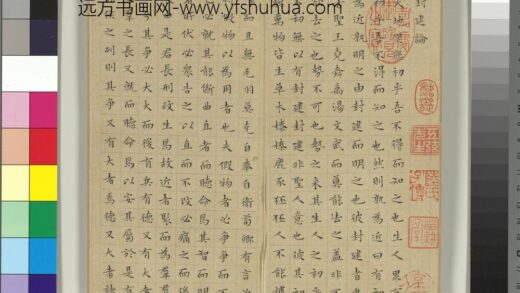 远方书画网-www.yfshuhua.com
封建論
天地果無初乎吾不得而知之也生人果
初乎吾不得而知之也然則孰為近曰有初
為近孰明之由封建而明之也彼封建者
聖王堯舜禹湯文武而莫能去之蓋非不
去之也勢不可也勢之來其生人之初乎
初無以有封建封建非聖人意也彼其初
萬物皆生草木榛榛鹿豕狉狉人不能搏
而且無毛羽莫克自奉自衛荀卿有言必
假物以為用者也夫假物者必爭爭而不
必就其能斷曲直者而聽命焉其智而明
所伏必衆告之以直而不改必痛之而後
由是君長刑政生焉故近者聚而為羣
其爭必大大而後有兵有德又有大
之長又就而聽命焉以安其屬於是有
之列則其爭又有大者焉德又大者諸